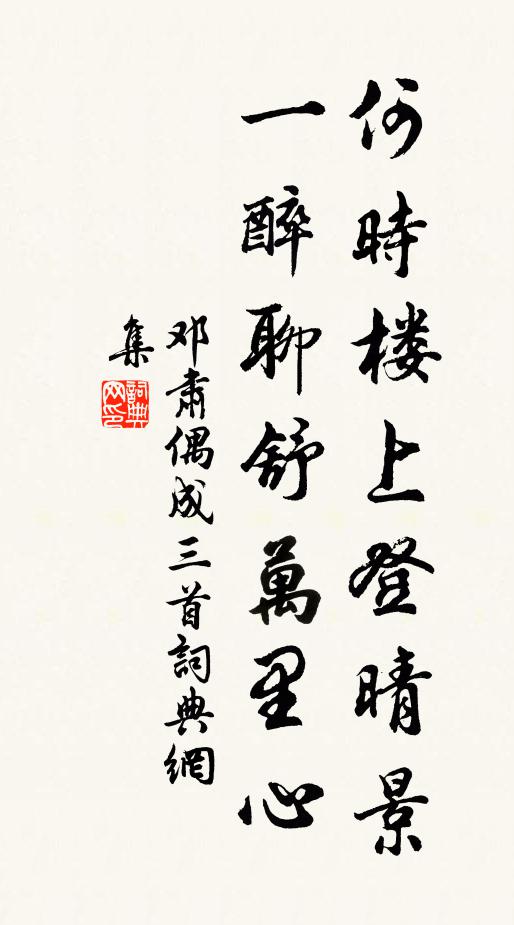 何時楼上登晴景
一醉聊舒萬里心
邓肅偶成三首詞典網
集
詞典
网印